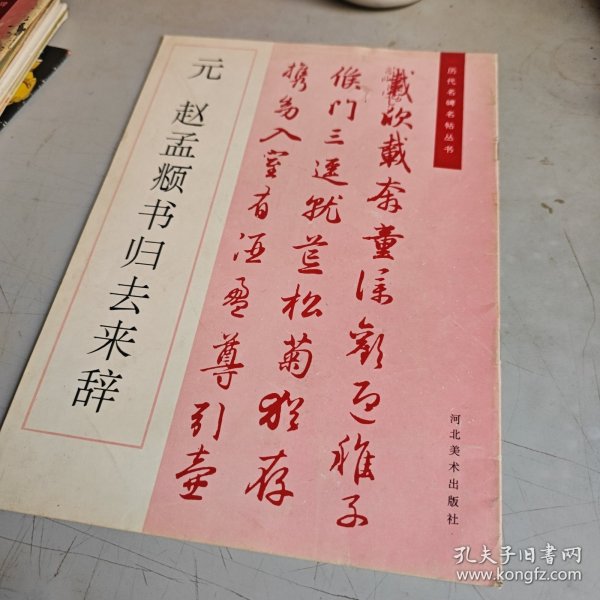 历代名碑名帖丛书
元 赵孟𫖯书归去来辞
載欣載奔童僕歡迎稚子
候門三逕就荒松菊猶存
携幼入室有酒盈尊引壺
河北美术出版社
孔夫子旧书网
www.kongfz.com